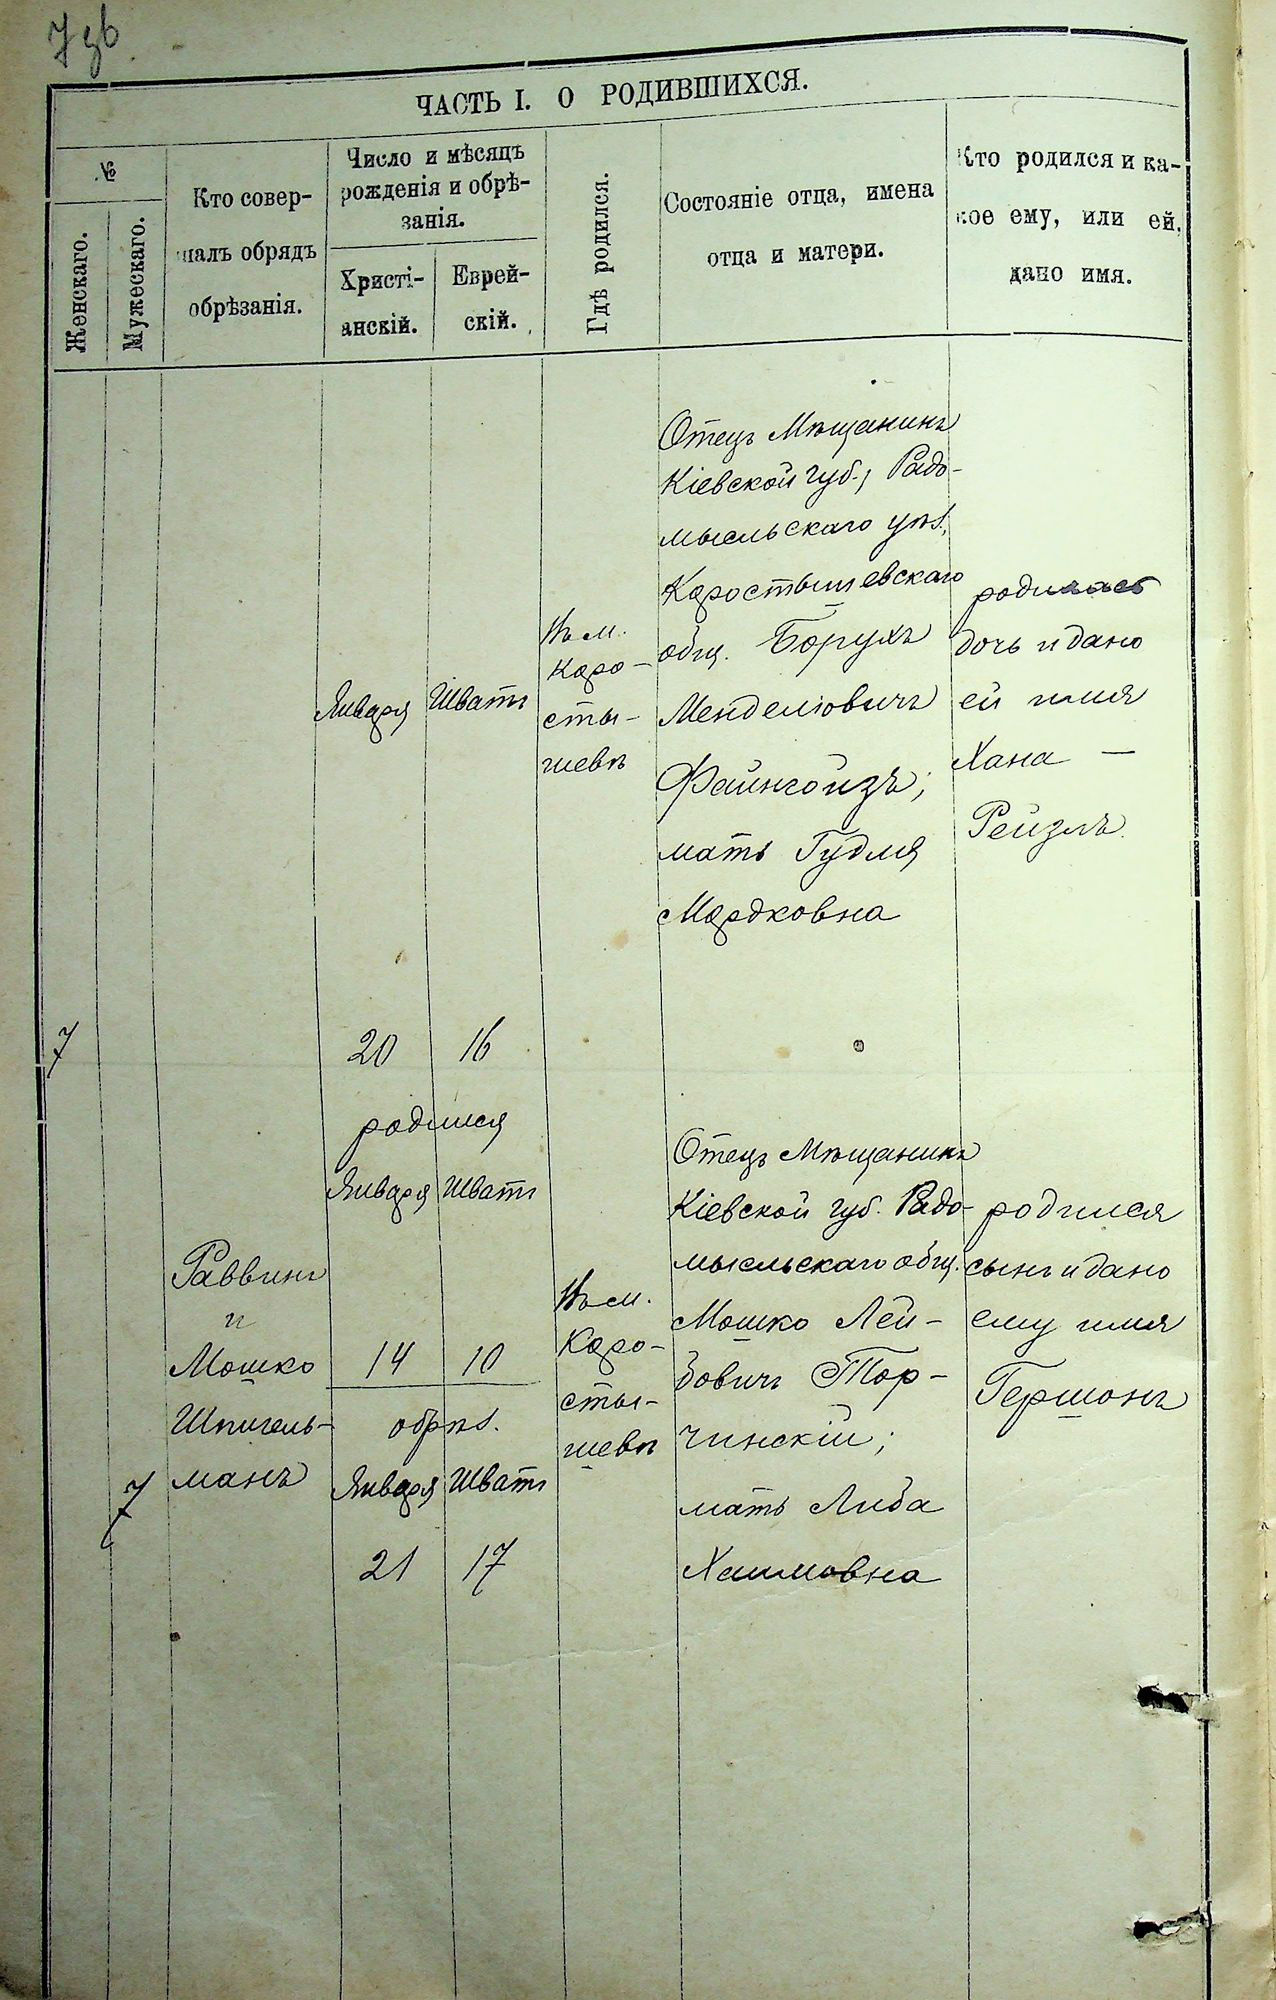 7 об
ЧАСТЬ I. О РОДИВШИХСЯ.
№
Женскаго.
Мужескаго.
Кто совер-
шалъ обрядъ
обрѣзанія.
Число и мѣсяцъ
рожденія и обрѣ-
занія.
Христі-
анскій.
Еврей-
скій.
Гдѣ родился.
Состояніе отца, имена
отца и матери.
Кто родился и ка-
кое ему, или ей,
дано имя.
7
Января
20
Шватъ
16
Въ м.
Коро-
сты-
шевѣ
Отецъ Мѣщанинъ
Кіевской губ., Радо-
мысльскаго уѣз.,
Коростышевскаго
общ. Борухъ
Менделіовичъ
Файнгойзъ;
мать Гудля
Мордковна
родилась
дочь и дано
ей имя
Хана —
Рейзлъ.
7
Раввинъ
и
Мошко
Шпигель-
манъ
родился
Января Шватъ
14 10
обрѣз.
Января Шватъ
21 17
Въ м.
Коро-
сты-
шевѣ
Отецъ Мѣщанинъ
Кіевской губ. Радо-
мысльскаго общ.
Мошко Лей-
бовичъ Тор-
чинскій;
мать Либа
Хаимовна
родился
сынъ и дано
ему имя
Гершонъ